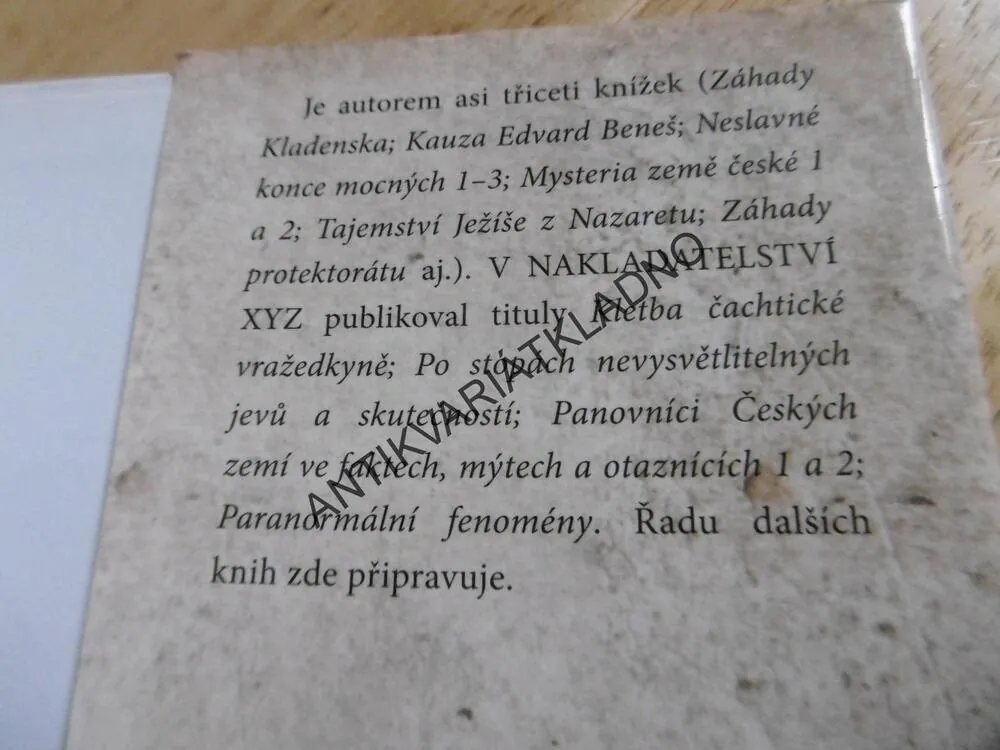 Je autorem asi třiceti knížek (Záhady
Kladenska; Kauza Edvard Beneš; Neslavné
konce mocných 1–3; Mysteria země české 1
a 2; Tajemství Ježíše z Nazaretu; Záhady
protektorátu aj.). V NAKLADATELSTVÍ
XYZ publikoval tituly Kletba čachtické
vražedkyně; Po stopách nevysvětlitelných
jevů a skutečností; Panovníci Českých
zemí ve faktech, mýtech a otaznících 1 a 2;
Paranormální fenomény. Řadu dalších
knih zde připravuje.
ANTIKVARIATKLADNO